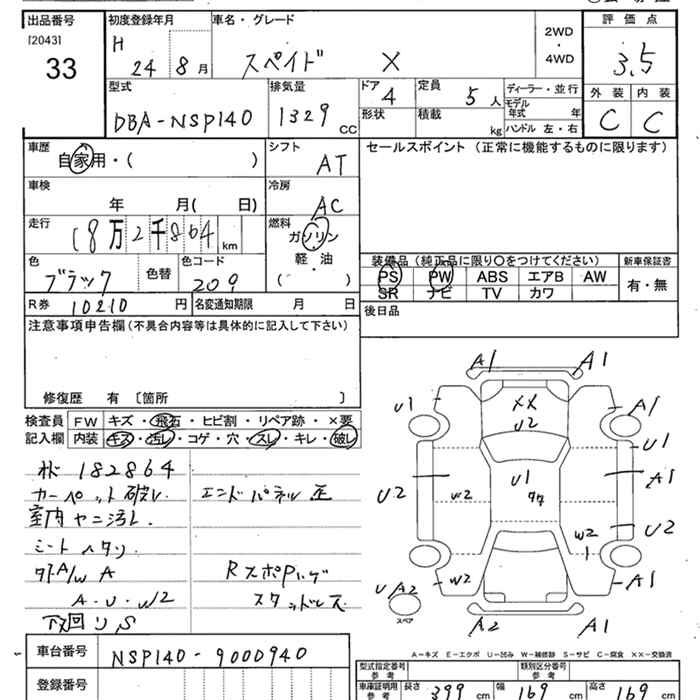 出品番号
[2043]
33
初度登録年月
H 24 8月
車名・グレード
スペイド X
2WD
・
4WD
評価点
3.5
外装 内装
C C
型式
DBA-NSP140
排気量
1329 CC
ドア
4
形状
定員
5人
積載
kg
ディーラー・並行
モデル
年式 年
ハンドル 左・右
車歴
自家用・( )
シフト
AT
セールスポイント (正常に機能するものに限ります)
車検
年 月( 日)
冷房
AC
走行
18万2千864 km
燃料
ガソリン
軽・油
( )
色
ブラック
色替
色コード
209
装備品 (純正品に限り○をつけてください)
PS PW ABS エアB AW
SR ナビ TV カワ
新車保証書
有・無
R券 10210 円
名変通知期限 月 日
後日品
注意事項申告欄(不具合内容等は具体的に記入して下さい)
修復歴 有 〔箇所 〕
検査員
記入欄
FW キズ・飛石・ヒビ割・リペア跡・×要
内装 キズ・汚レ・コゲ・穴・スレ・キレ・破レ
182864
カーペット破レ エンドパネル正
室内ヤニ汚レ
シートヘタリ
外A/W A
Rスポハゲ
A・U・W2
スタッドレス
下回リS
A1 A1
U1 XX A1
U2
U1
U1 A1
U2 W2
W2 U2
W2 A1
UA2
スペア
A2 A1
A-キズ E-エクボ U-凹み W-補修跡 S-サビ C-腐食 XX-交換済
車台番号
NSP140-9000940
登録番号
型式指定番号
参考
類別区分番号
参考
車庫証明用
参考
長さ 399 cm 幅 169 cm 高さ 169 cm